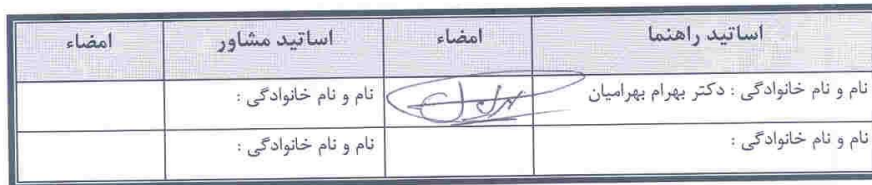 اساتید راهنما امضاء اساتید مشاور امضاء
نام و نام خانوادگی : دکتر بهرام بهرامیان نام و نام خانوادگی :
نام و نام خانوادگی : نام و نام خانوادگی :